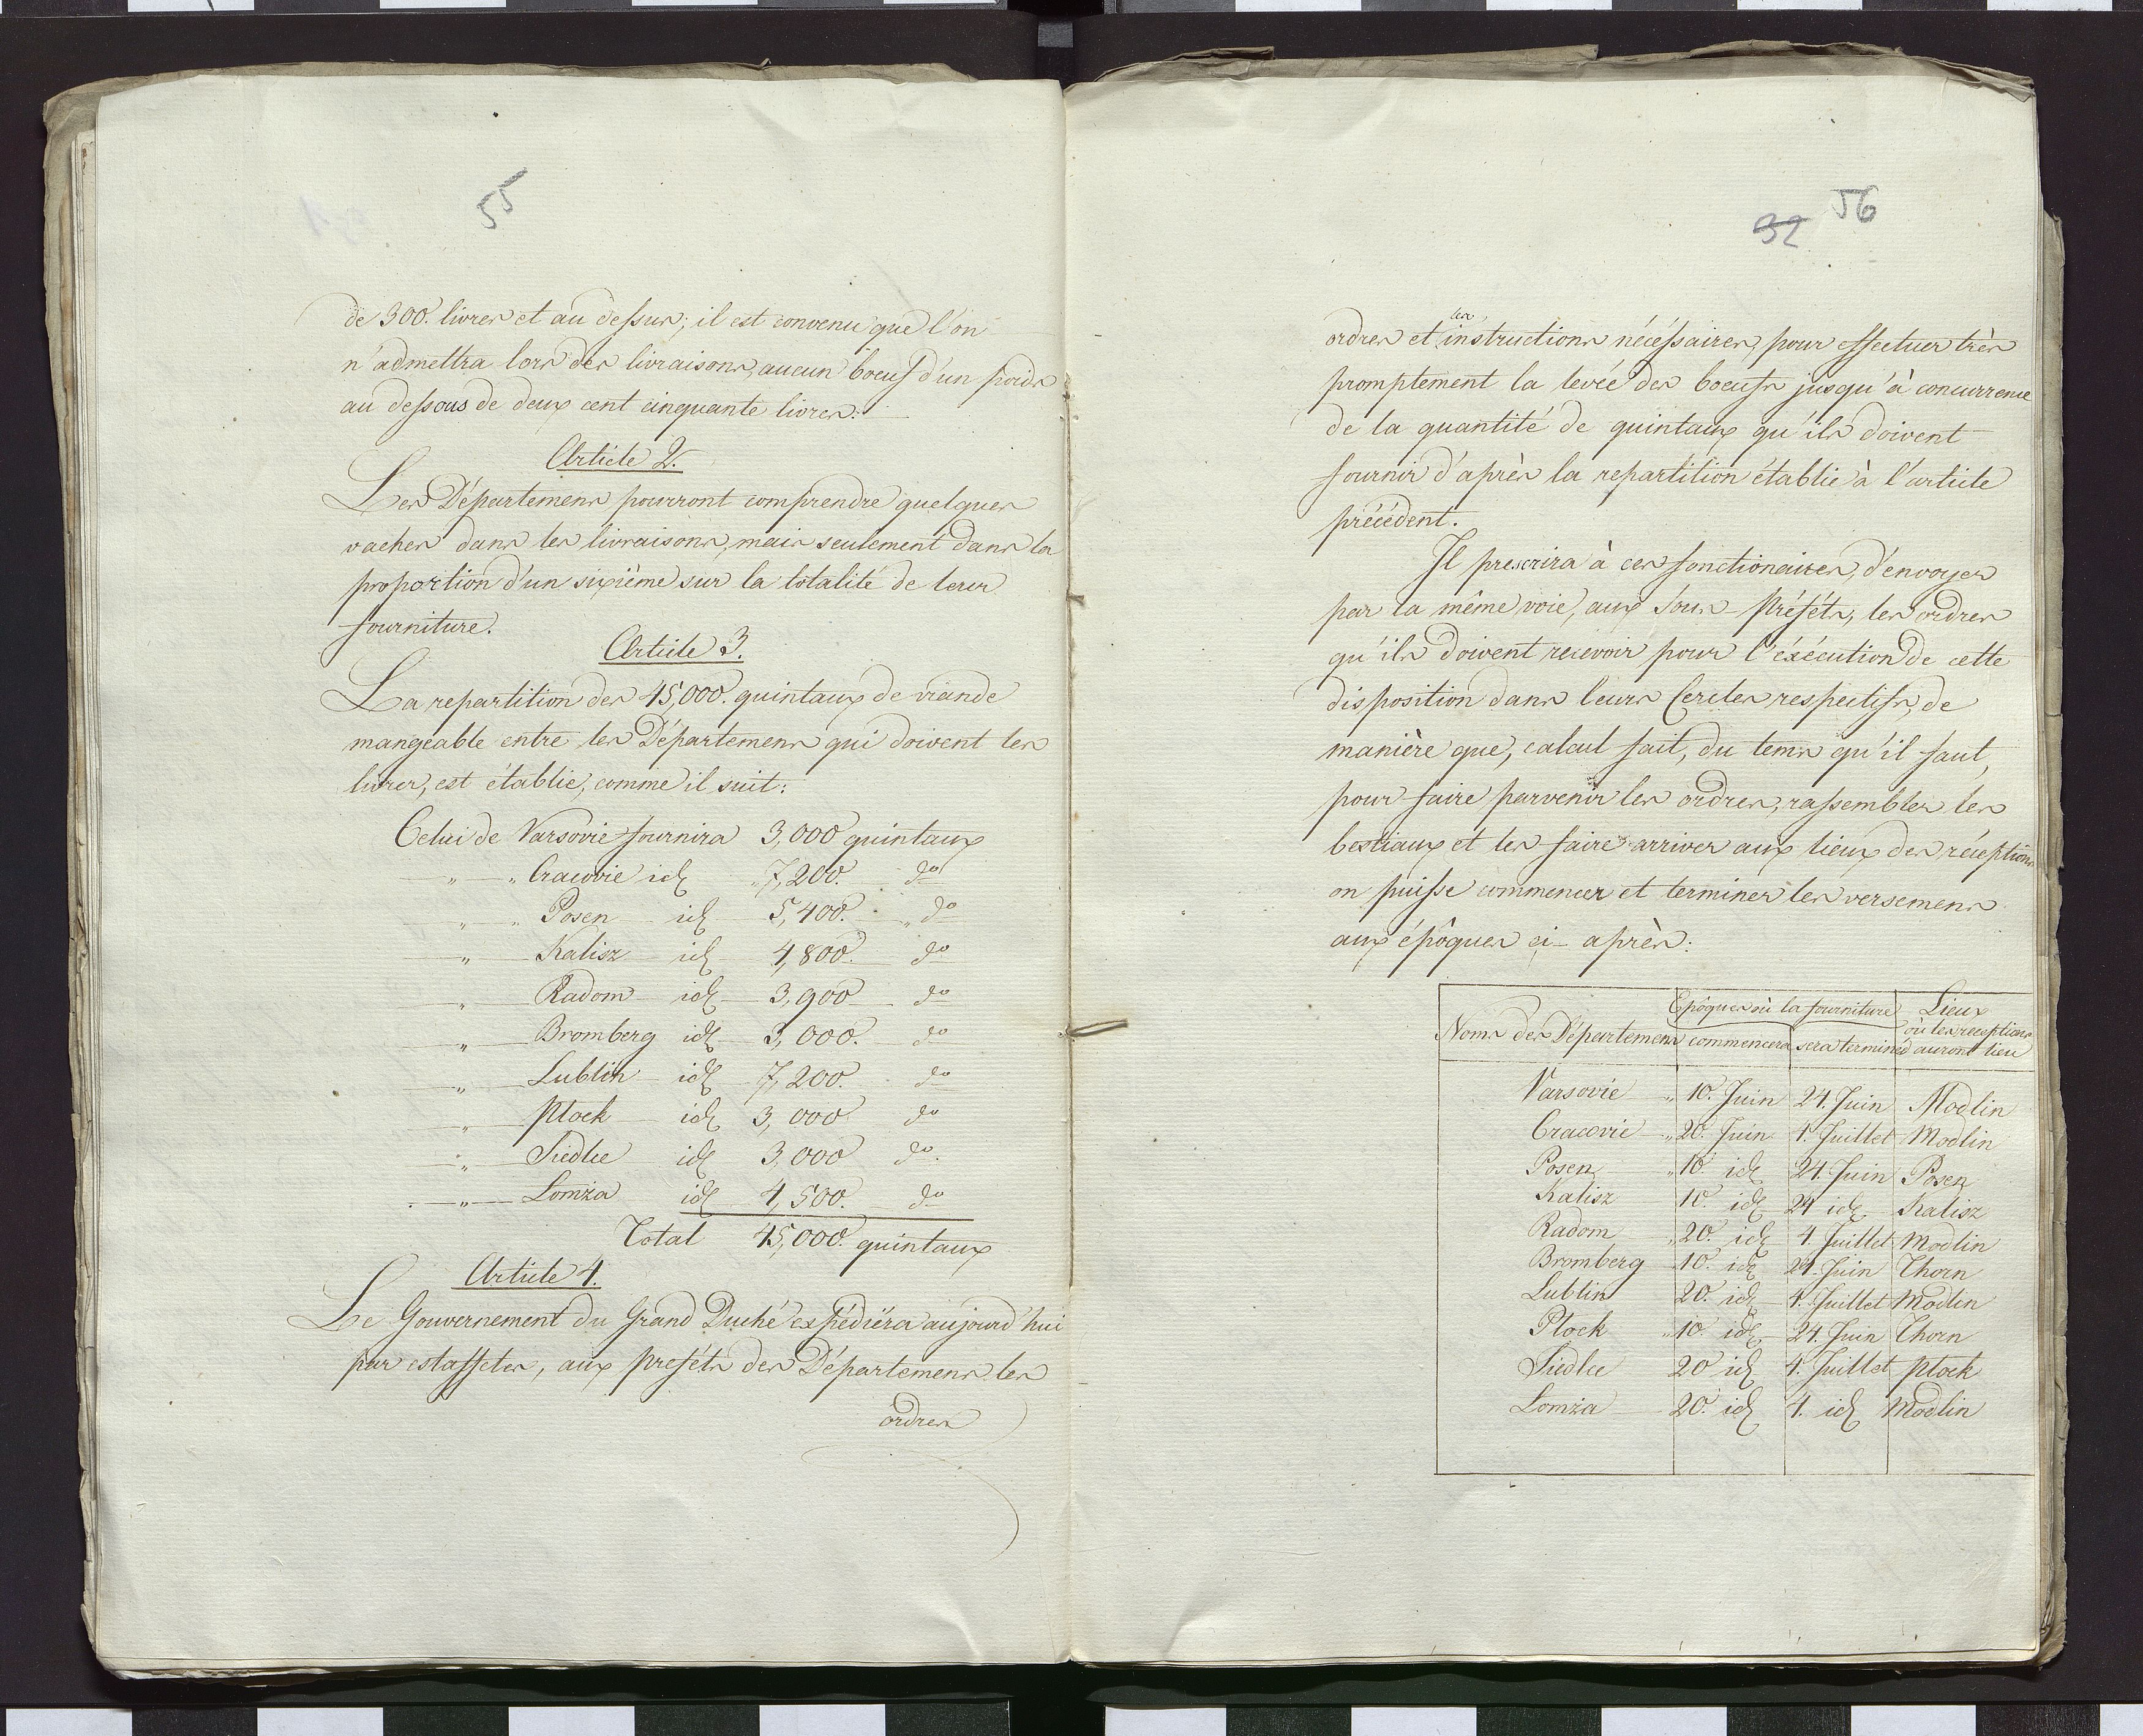 55
de 300. livres et au dessus; il est convenu que l'on
n'admettra lors des livraisons, aucun boeuf d'un poids
au dessous de deux cent cinquante livres.
Article 2.
Les Départemens pourront comprendre quelques
vaches dans les livraisons, mais seulement dans la
proportion d'un sixième sur la totalité de leur
fourniture.
Article 3.
La repartition des 45,000. quintaux de viande
mangeable entre les Départemens qui doivent les
livrer, est établie, comme il suit:
Celui de Varsovie fournira 3,000 quintaux
" " Cracovie id 7,200. do
" " Posen id 5,400. " do
" Kalisz id 4,800. do
" Radom id 3,900 do
" Bromberg id 3,000. do
" Lublin id 7,200. do
" Plock id 3,000 do
" Siedlce id 3,000 do.
" Lomża id 4,500. do
Total 45,000. quintaux
Article 4.
Le Gouvernement du Grand Duché expédiéra aujourd'hui
par estaffetes, aux preféts des Départemens les
ordres
32 56
ordres et les instructions nécéssaires, pour effectuer très
promptement la levée des boeufs jusqu'à concurrence
de la quantité de quintaux qu'ils doivent
fournir d'après la repartition établie à l'article
précédent.
Il prescrira à ces fonctionaires, d'envoyer
par la même voie, aux Sous-Préféts, les ordres
qu'ils doivent recevoir pour l'éxécution de cette
disposition dans leurs Cercles respectifs, de
manière que, calcul fait, du tems qu'il faut,
pour faire parvenir les ordres, rassembler les
bestiaux et les faire arriver aux lieux des réceptions
on puisse commencer et terminer les versemens
aux épôques ci-après:
Noms des Départemens Epôques où la fourniture commencera sera terminée Lieux où les receptions auront lieu
Varsovie " 10. Juin 24. Juin Modlin
Cracovie " 20. Juin 4. Juillet Modlin
Posen " 10. id 24. Juin Posen
Kalisz 10. id 24 id Kalisz
Radom " 20. id 4. Juillet Modlin
Bromberg 10. id 24. Juin Thorn
Lublin 20. id 4. Juillet Modlin
Plock " 10. id 24. Juin Thorn
Siedlce 20 id 4. Juillet Plock
Lomża 20. id 4. id Modlin